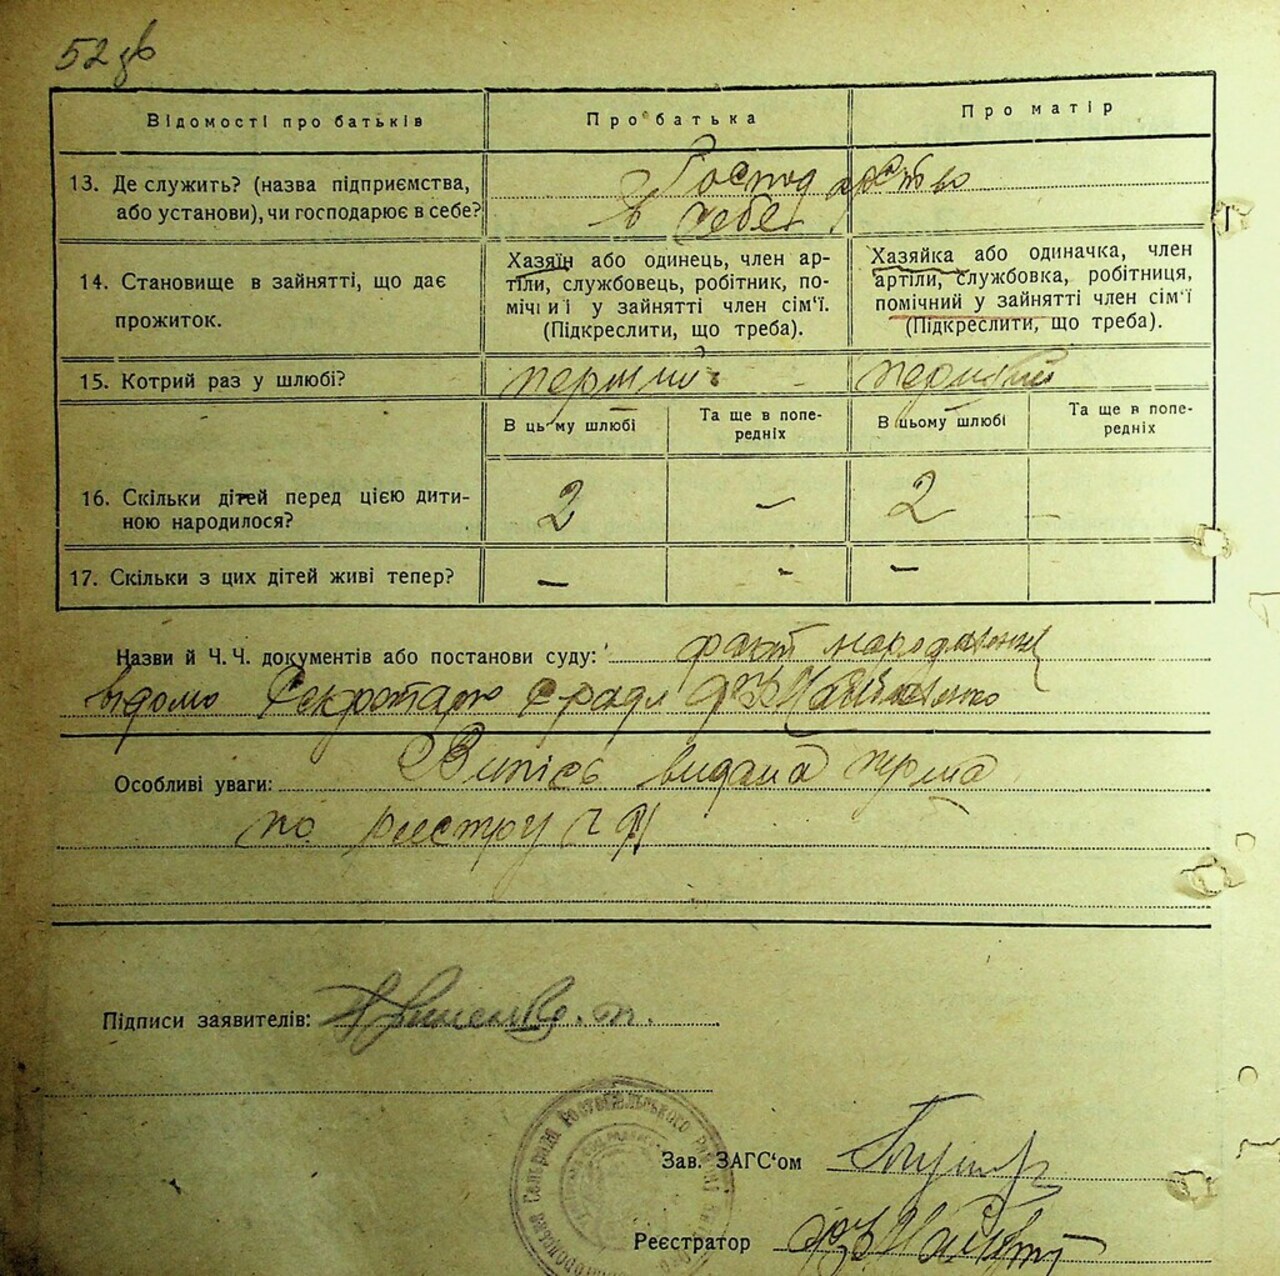 52 зв
Відомості про батьків
Про батька
Про матір
13. Де служить? (назва підприємства,
або установи), чи господарює в себе?
Господарство
в себе
14. Становище в зайнятті, що дає
прожиток.
Хазяїн або одинець, член ар-
тіли, службовець, робітник, по-
мічний у зайнятті член сім'ї.
(Підкреслити, що треба).
Хазяйка або одиначка, член
артіли, службовка, робітниця,
помічний у зайнятті член сім'ї
(Підкреслити, що треба).
15. Котрий раз у шлюбі?
перший -
перший
В цьому шлюбі
Та ще в попе-
редніх
В цьому шлюбі
Та ще в попе-
редніх
16. Скільки дітей перед цією дити-
ною народилося?
2 - 2 -
17. Скільки з цих дітей живі тепер?
- - -
Назви й Ч.Ч. документів або постанови суду: факт народження
відомо Секретарю с ради
Особливі уваги: Випись видана
по реєстру
Підписи заявителів:
Зав. ЗАГС'ом
Реєстратор